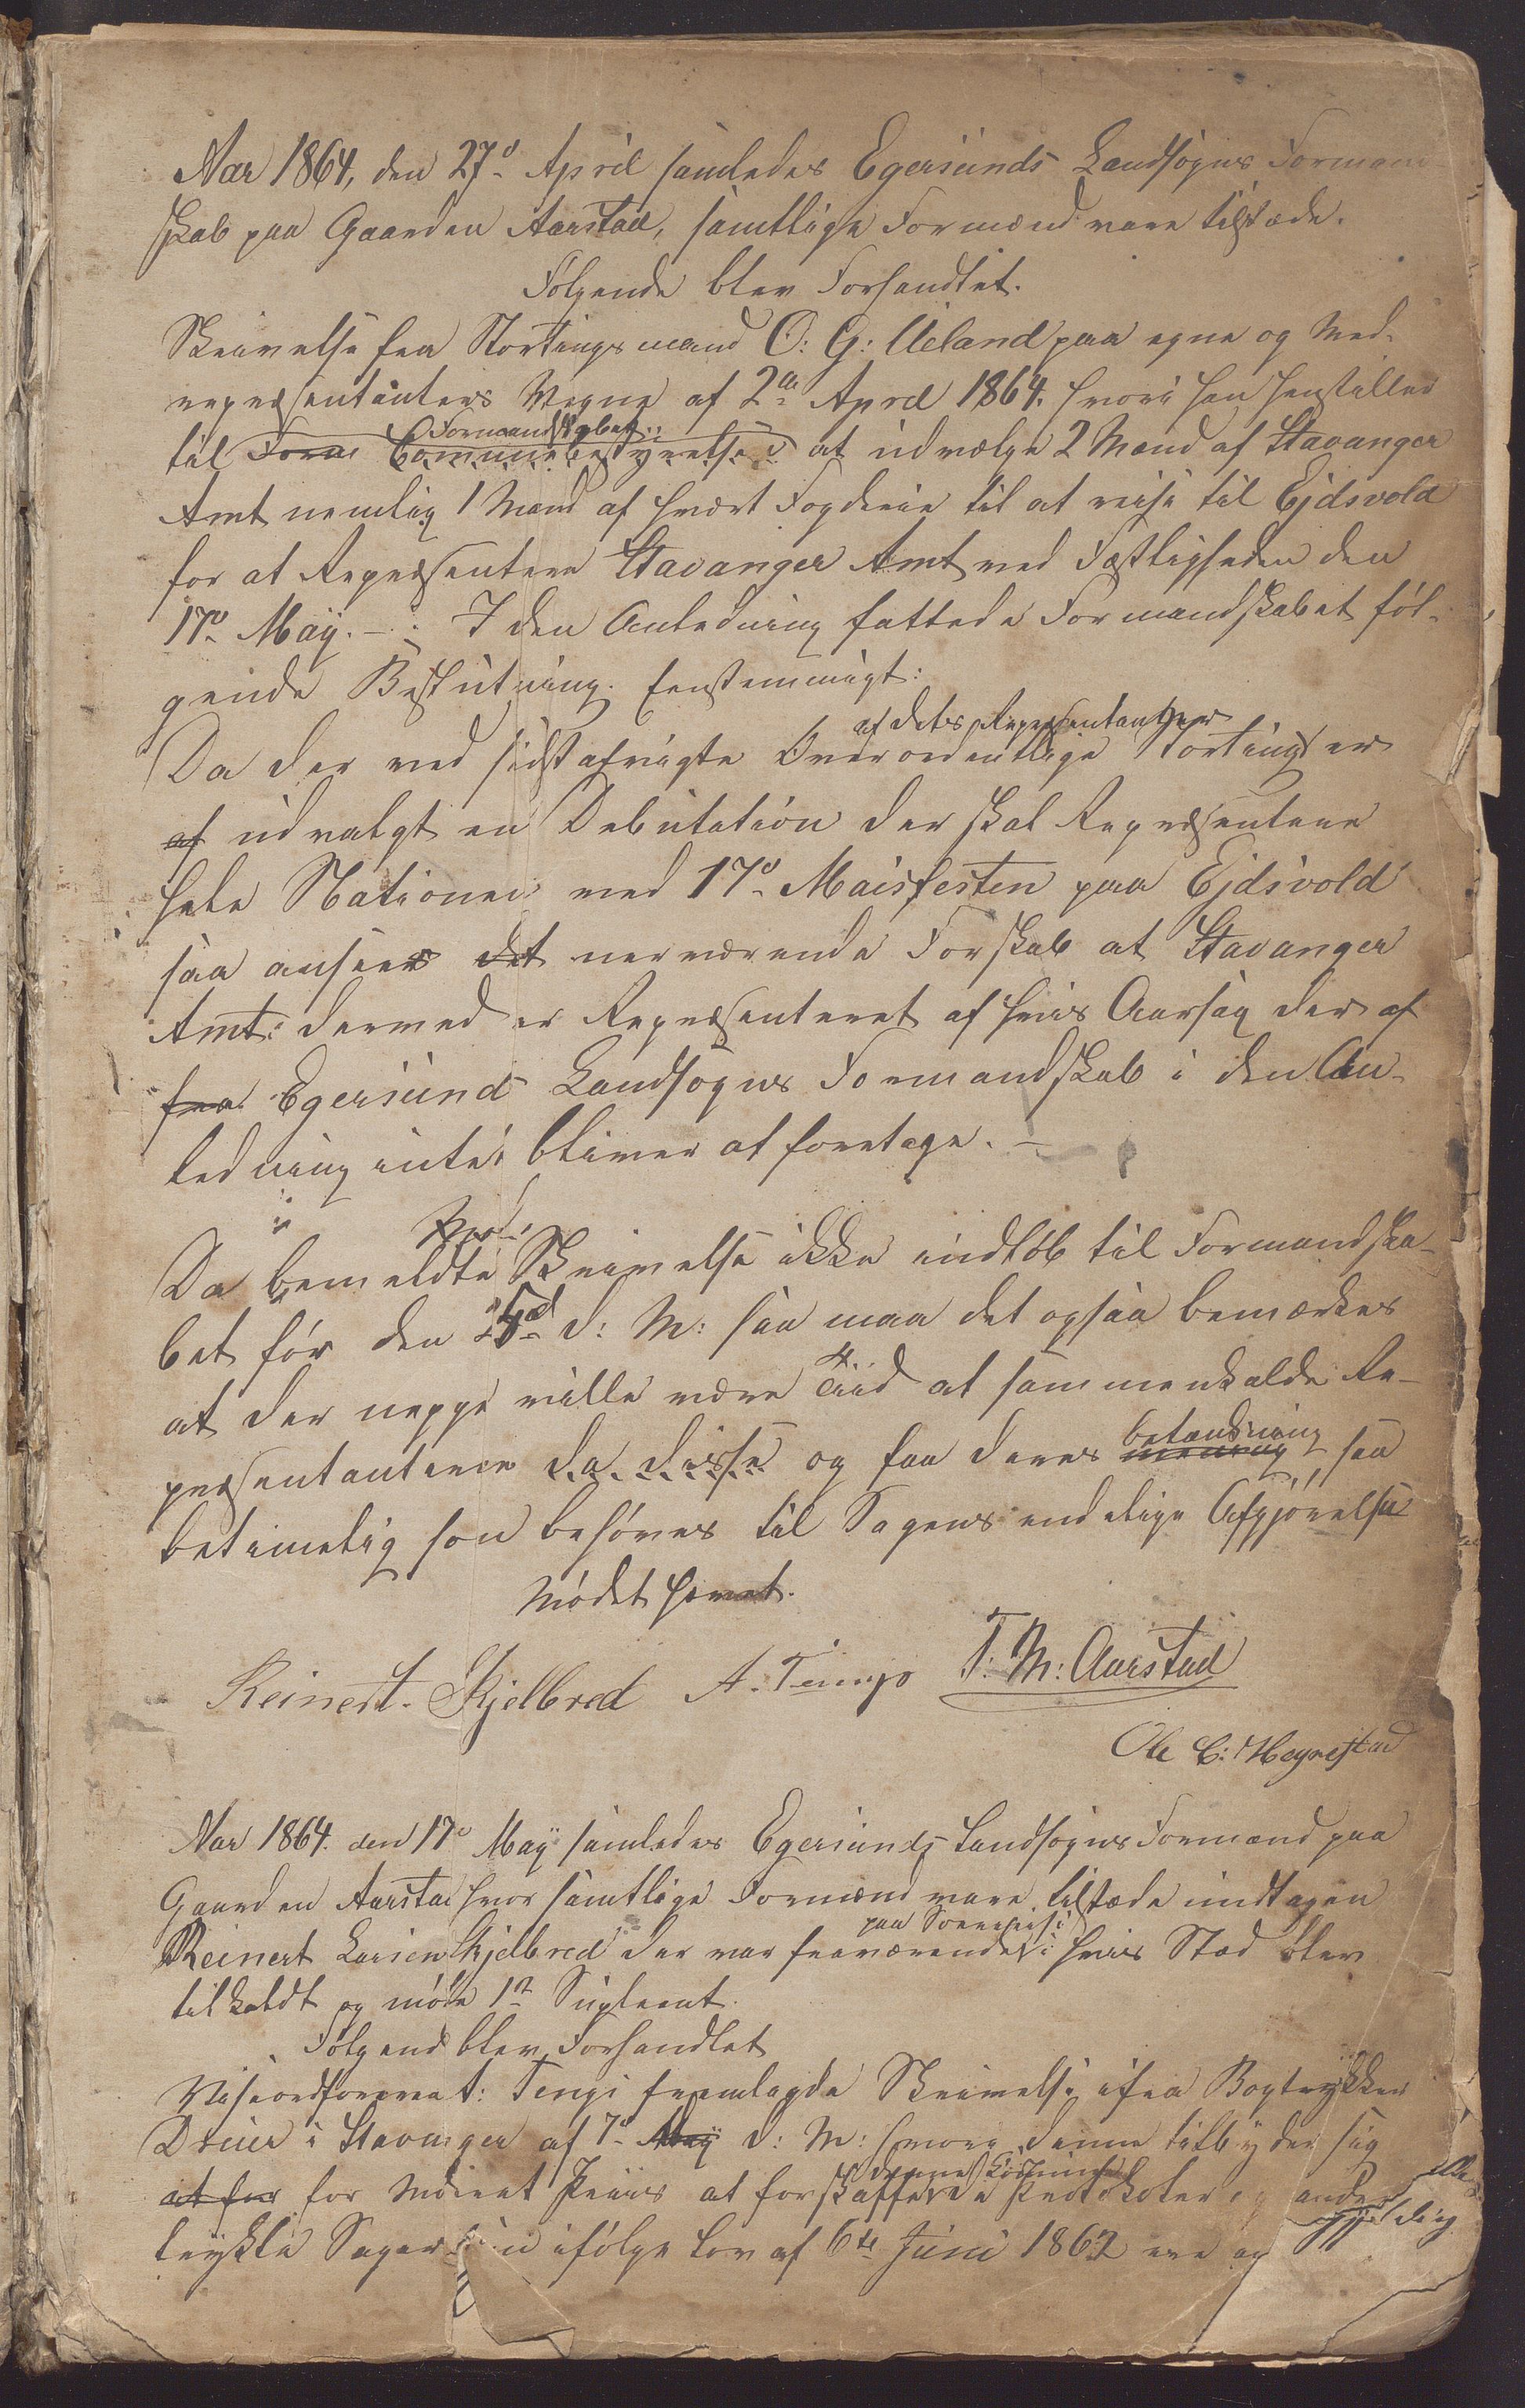 Aar 1864, den 27d April samledes Egersunds Landsogns Formand-
skab paa Gaarden Aarstad, samtlige Formænd vare tilstæde.
Følgende blev Forhandlet.
Skrivelse fra Stortingsmand O: G: Ueland paa egne og Med-
representanters Vegne af 2den April 1864. hvori han henstiller
til Form Formandskabet Communebestyrelse at udvælge 2 Mænd af Stavanger
Amt nemlig 1 Mand af hvært Fogderie til at reise til Ejdsvold
for at Representere Stavanger Amt ved Festligheden den
17d May. - I den Anledning fattede Formandskabet føl-
gende Beslutning. Eenstemmigt:
af dets Representantere
Da der ved sidstafvigte Overordentlige Storting er
af udvalgt en Debutation der skal Representere
hele Nationen ved 17d Maisfesten paa Ejdsvold
saa anseer det nerværende Forskab at Stavanger
Amt: dermed er Representeret af hvis Aarsag der af
fra Egersund Landsogns Formandskab i den An-
ledning intet bliver at foretage. -
Da bemeldte Skrivelse ikke indløb til Formandska-
bet før den 25d d: M: saa maa det ogsaa bemærkes
at der neppe ville være Tiid at sammenkalde Re-
presentanterne da disse og faa deres mening betænkning saa
betimelig som behøves til Sagens endelige Afgjørelse
Mødet hævet.
Reinert. Skjelbred A. Tengs T: M: Aarstad
Ole C: Hegrestad
Aar 1864. den 17d May samledes Egersunds Landsogns Formænd paa
Gaarden Aarstad hvor samtlige Formænd vare tilstæde undtagen
Reinert Larsen Skjelbred der var fraværende paa Søereise i hvis Sted blev
tilkaldt og møtte 1ste Supleant.
Følgend blev Forhandlet
Viseordføreren A: Tengs fremlagde Skrivelse ifra Bogtrykker
Dreier i Stavanger af 7d May d: M: hvori denne tilbyder sig
at for for Moderat Priis at forskaffe Protokoler og andre
trykte Sager ifølge Lov af 6te Juni 1863 ere